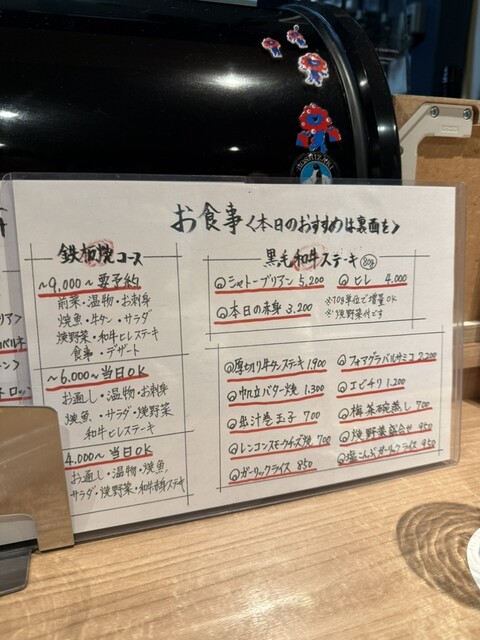 お食事<本日のおすすめは裏面を>
鉄板焼コース
~9,000~要予約
前菜・温物・お刺身
焼魚・牛タン・サラダ
焼野菜・和牛ヒレステーキ
食事・デザート
~6,000~当日OK
お通し・温物・お刺身
焼魚・サラダ・焼野菜
和牛ヒレステーキ
4,000~当日OK
お通し・温物・焼魚
サラダ・焼野菜・和牛赤身ステキ
黒毛和牛ステーキ 80g
シャトーブリアン 5,200
ヒレ 4,000
本日の赤身 3,200
※10g単位で増量OK
※焼野菜付です
厚切り牛タンステーキ 1900
帆立バター焼 1,300
出汁巻玉子 700
レンコンスモークチーズ焼 700
ガーリックライス 850
フォアグラバルサミコ 2,200
エビチリ 1,200
梅茶碗蒸し 700
焼野菜盛合せ 950
塩こんぶガーリックライス 950